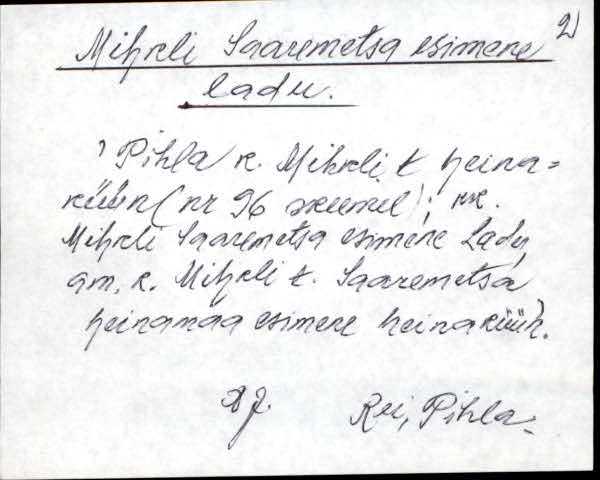 2)
Mihkli Saaremetsa esimene
ladu.
' Pihla k. Mihkli t heina-
küün (nr 96 skeemil); nn.
Mihkli Saaremetsa esimene Ladu,
am. k. Mihkli t. Saaremetsa
heinamaa esimene heinaküün.
Rei, Pihla.